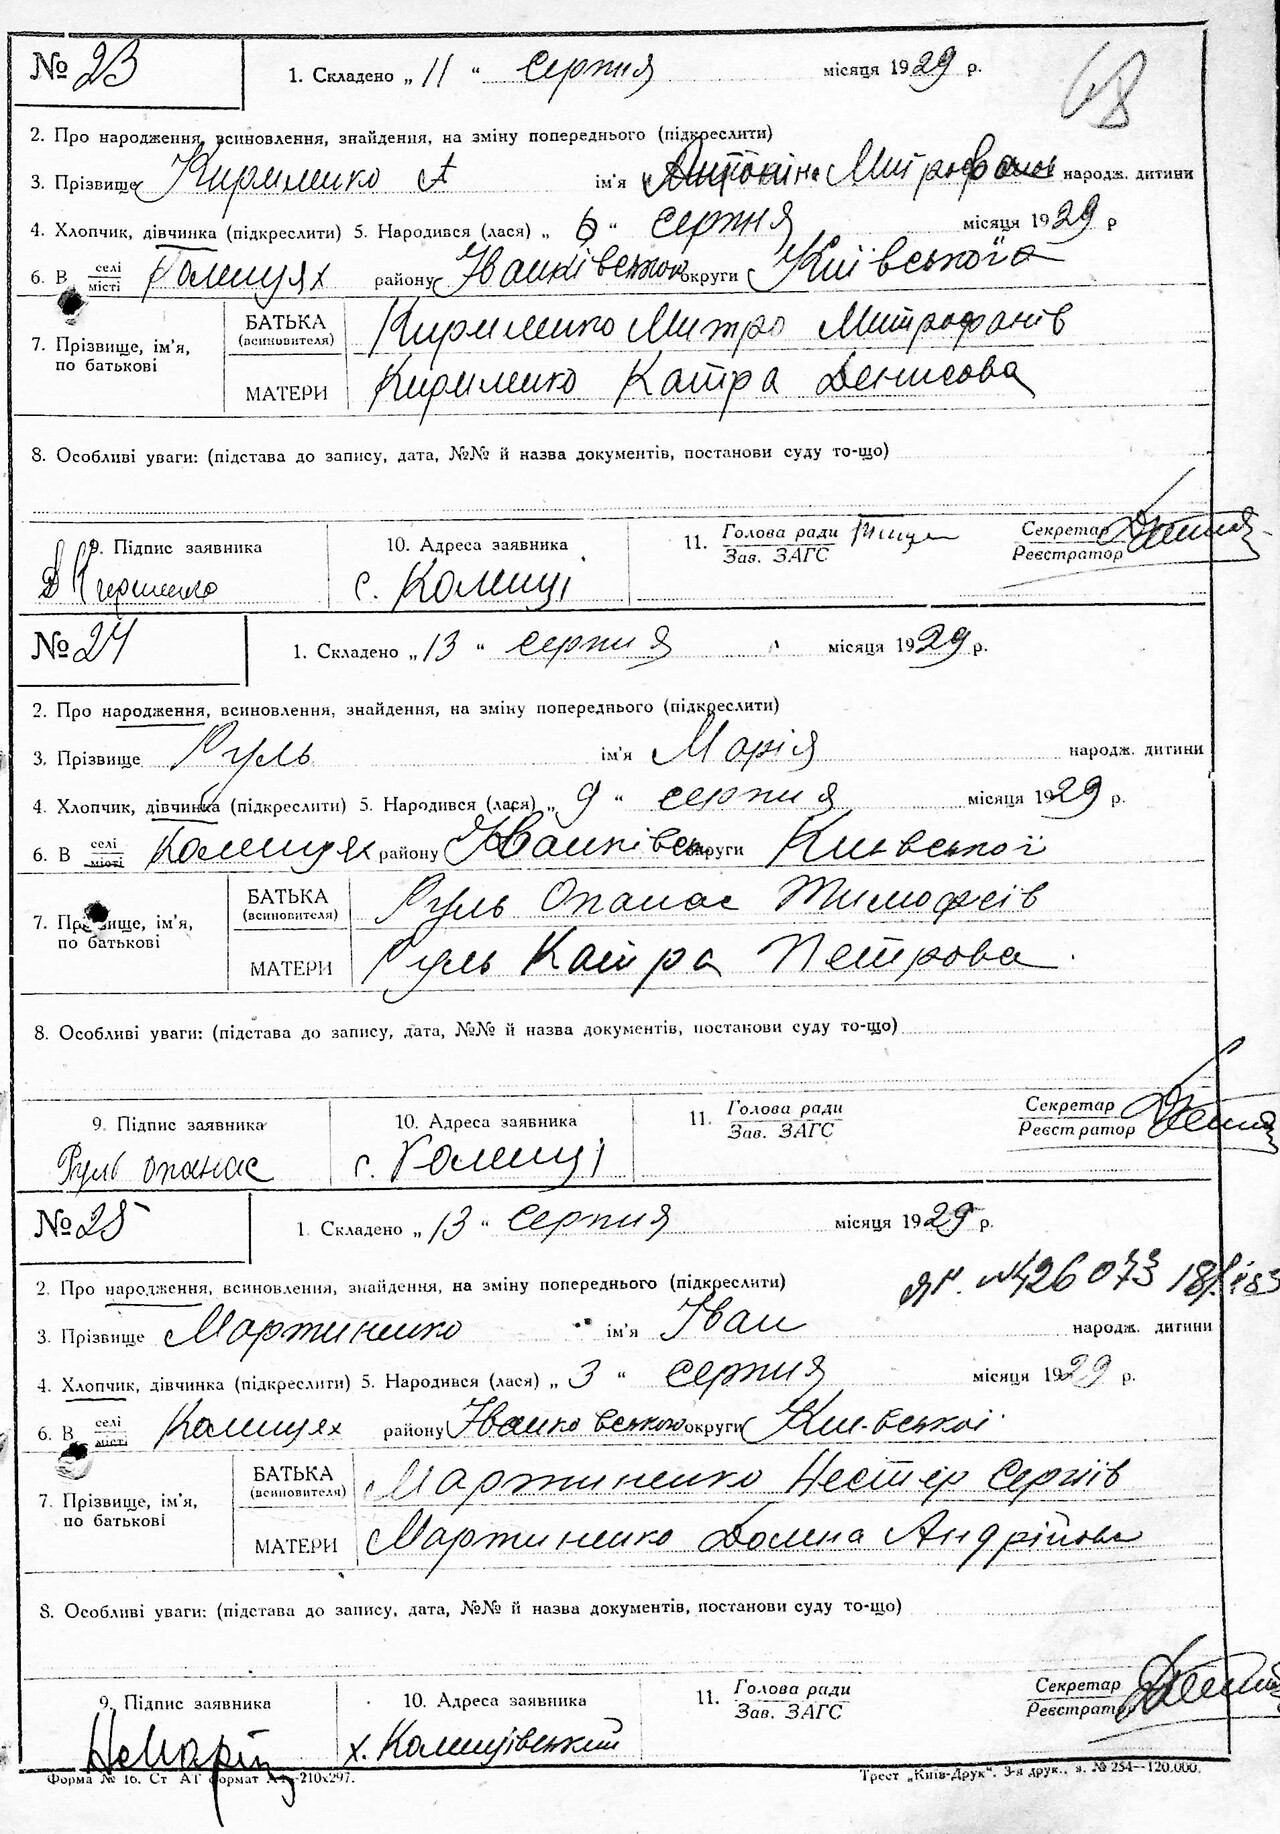 № 23
1. Складено „ 11 “ серпня місяця 1929 р.
68
2. Про народження, всиновлення, знайдення, на зміну попереднього (підкреслити)
3. Прізвище Кириленко А ім'я народж. дитини
4. Хлопчик, дівчинка (підкреслити) 5. Народився (лася) „ 6 “ серпня місяця 1929 р
6. В селі місті району округи Київської
7. Прізвище, ім'я, по батькові
БАТЬКА (всиновителя) Кириленко Митро Митрофанів
МАТЕРИ Кириленко Катра Денисова
8. Особливі уваги: (підстава до запису, дата, №№ й назва документів, постанови суду то-що)
9. Підпис заявника
10. Адреса заявника
11. Голова ради Зав. ЗАГС
Секретар Реєстратор
Д Кириленко с.
№ 24
1. Складено „ 13 “ серпня місяця 1929 р.
2. Про народження, всиновлення, знайдення, на зміну попереднього (підкреслити)
3. Прізвище Руль ім'я Марія народж. дитини
4. Хлопчик, дівчинка (підкреслити) 5. Народився (лася) „ 9 “ серпня місяця 1929 р.
6. В селі місті району округи Київської
7. Прізвище, ім'я, по батькові
БАТЬКА (всиновителя) Руль Опанас Тимофеів
МАТЕРИ Руль Катра Петрова
8. Особливі уваги: (підстава до запису, дата, №№ й назва документів, постанови суду то-що)
9. Підпис заявника
10. Адреса заявника
11. Голова ради Зав. ЗАГС
Секретар Реєстратор
Руль опанас с.
№ 25
1. Складено „ 13 “ серпня місяця 1929 р.
2. Про народження, всиновлення, знайдення, на зміну попереднього (підкреслити)
3. Прізвище Мартиненко ім'я Іван народж. дитини
4. Хлопчик, дівчинка (підкреслити) 5. Народився (лася) „ 3 “ серпня місяця 1929 р.
6. В селі місті району округи
7. Прізвище, ім'я, по батькові
БАТЬКА (всиновителя) Мартиненко Нестер Сергіїв
МАТЕРИ Мартиненко
8. Особливі уваги: (підстава до запису, дата, №№ й назва документів, постанови суду то-що)
9. Підпис заявника
10. Адреса заявника
11. Голова ради Зав. ЗАГС
Секретар Реєстратор
Форма № 16. Ст А1 формат А4—210x297.
Трест „Київ-Друк“. 3-я друк., з. № 254—120.000.